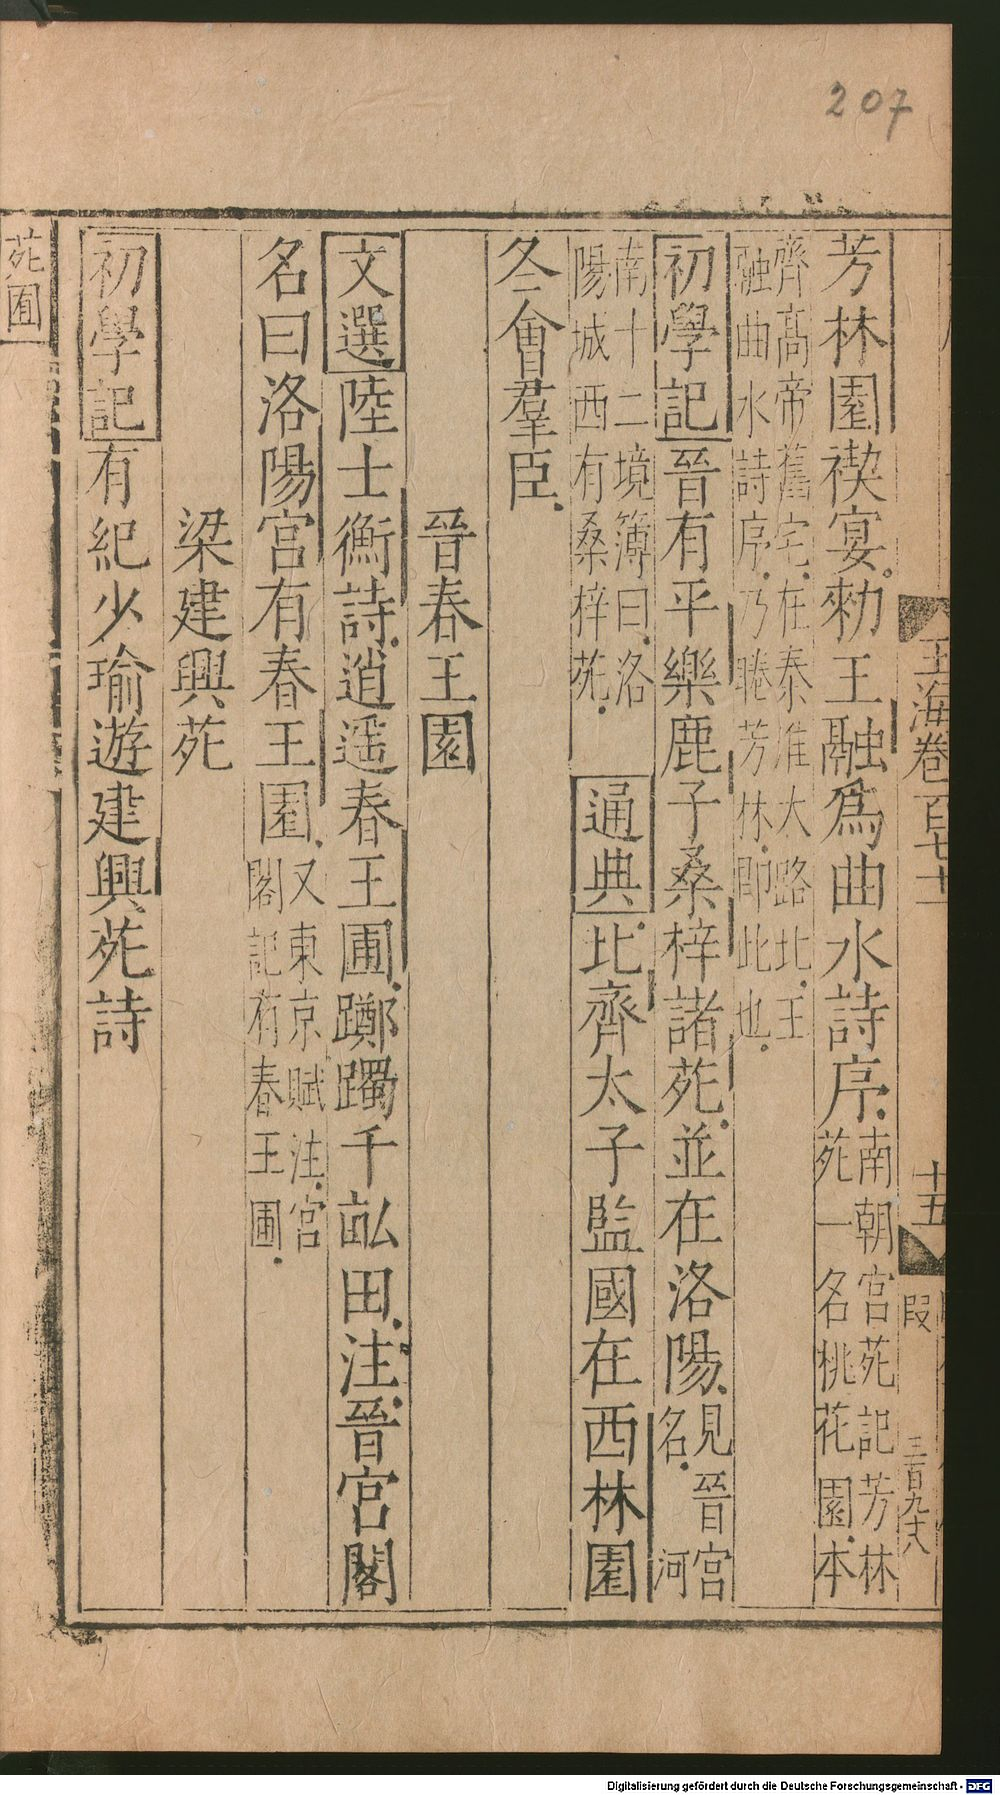 207
玉海卷百七十一
十五
段
三百九十八
芳林園禊宴勑王融爲曲水詩序南朝宮苑記芳林
苑一名桃花園本
齊高帝舊宅在秦淮大路北王
融曲水詩序乃睠芳林即此也
初學記晉有平樂鹿子桑梓諸苑並在洛陽見晉宮
名河
南十二境簿曰洛
陽城西有桑梓苑
通典北齊太子監國在西林園
冬會羣臣
晉春王園
文選陸士衡詩逍遥春王圃躑躅千畝田注晉宮閣
名曰洛陽宮有春王園又東京賦注宮
閣記有春王圃
梁建興苑
初學記有紀少瑜遊建興苑詩
苑囿
Digitalisierung gefördert durch die Deutsche Forschungsgemeinschaft - DFG